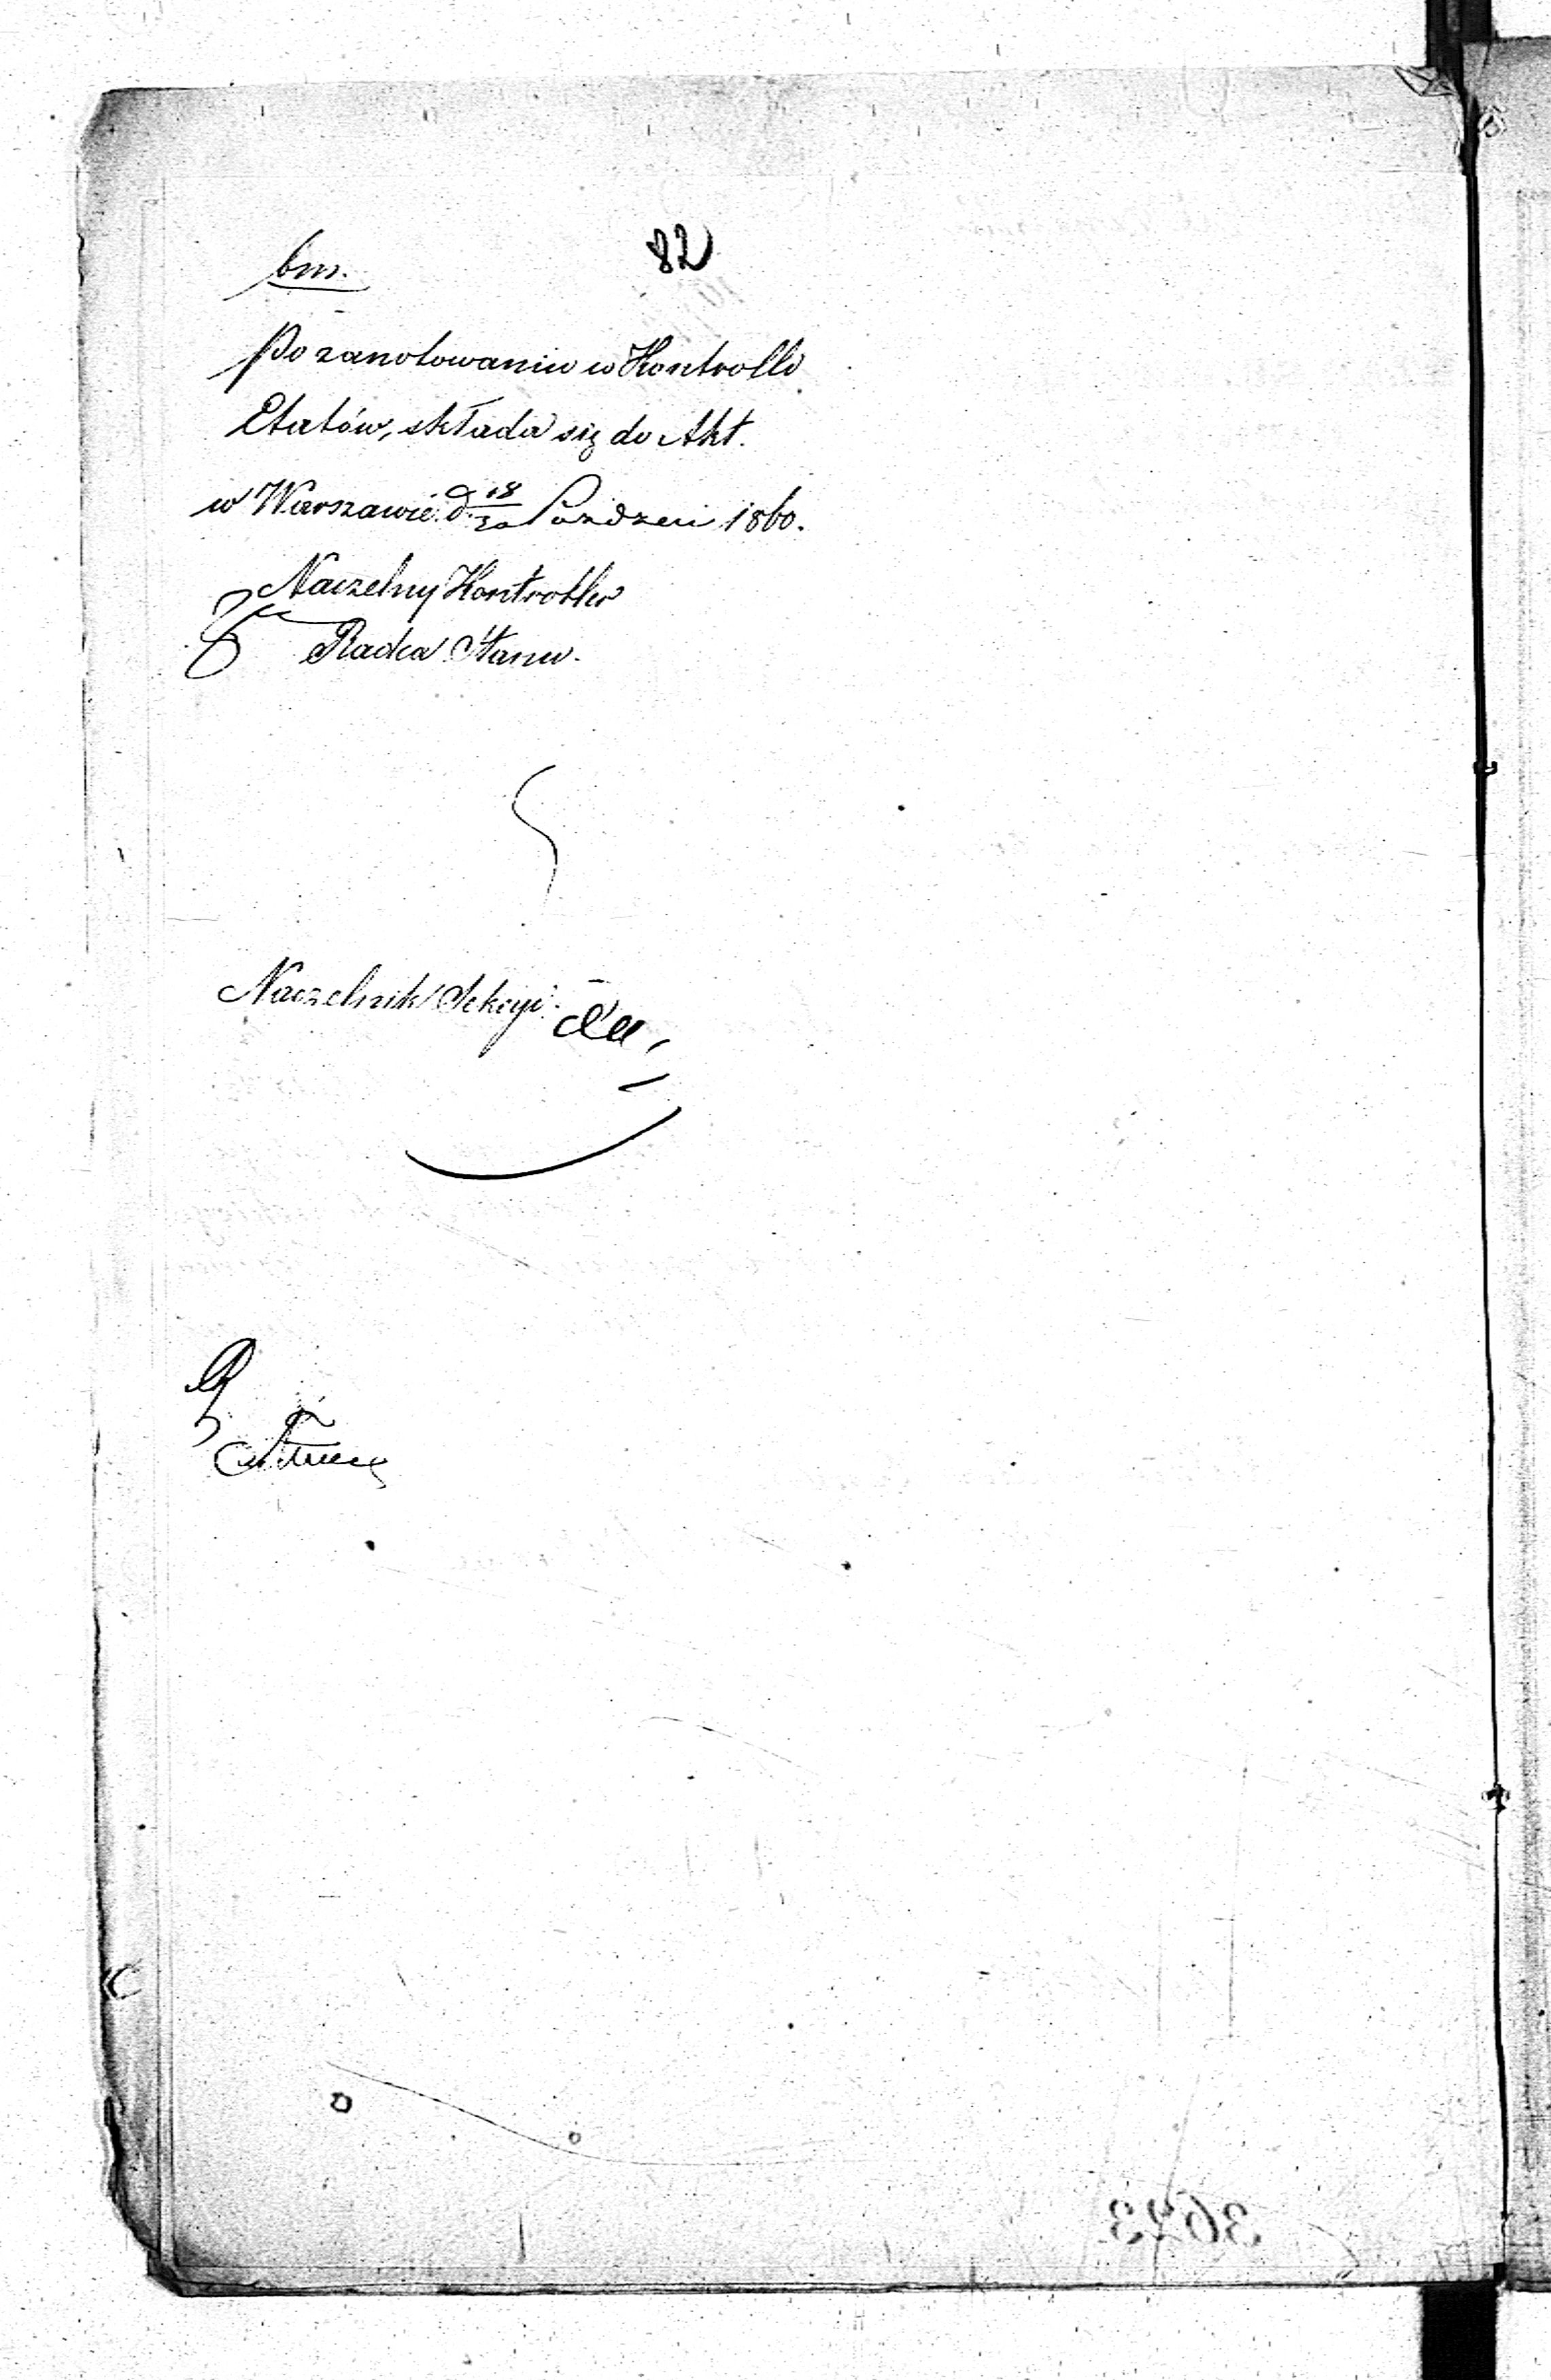 bm.
82
Po zanotowaniu w Kontrolli
Etatów, składa się do Akt.
w Warszawie d. 18/30 Paździer 1860.
Naczelny Kontroller
Radca Stanu.
Naczelnik Sekcyi.
3623